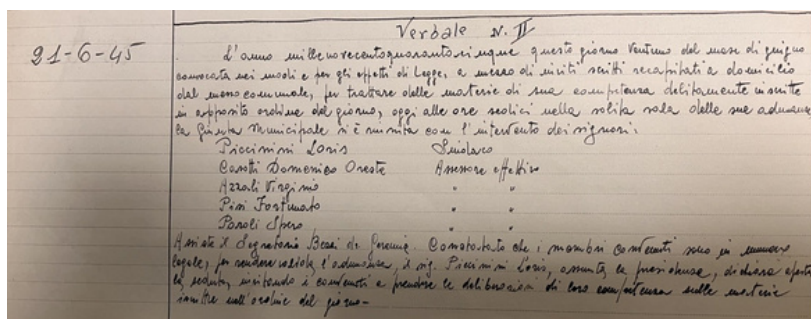 Verbale N. II
21-6-45
L'anno millenovecentoquarantacinque questo giorno Ventuno del mese di giugno
convocata nei modi e per gli effetti di Legge, a mezzo di inviti scritti recapitati a domicilio
dal messo comunale, per trattare delle materie di sua competenza debitamente inscritte
in apposito ordine del giorno, oggi alle ore sedici nella solita sala delle sue adunanze
la Giunta Municipale si è riunita con l'intervento dei signori:
Piccinini Loris Sindaco
Casotti Domenico Oreste Assessore effettivo
Azzali Virginio " "
Pisi Fortunato " "
Paroli Spero " "
Assiste il Segretario Bessi dr. Constatato che i membri convenuti sono in numero
legale, per rendere valida l'adunanza, il sig. Piccinini Loris, assunta la presidenza, dichiara aperta
la seduta, invitando i convenuti a prendere le deliberazioni di loro competenza sulle materie
inscritte nell'ordine del giorno-